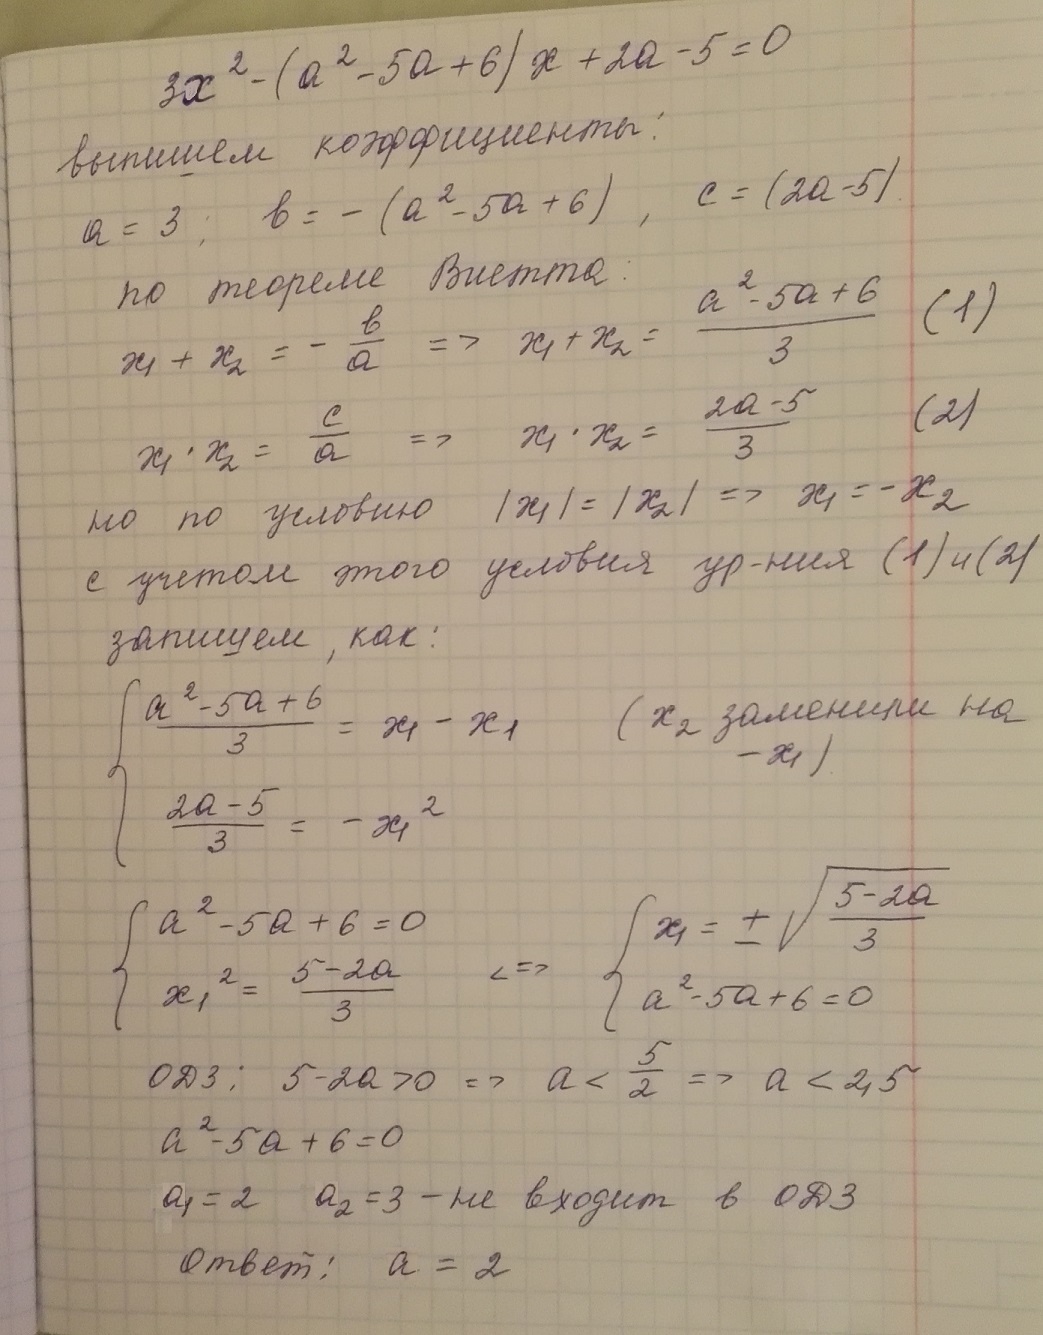 3x² - (a² - 5a + 6) x + 2a - 5 = 0
выпишем коэффициенты:
a = 3; в = - (a² - 5a + 6), c = (2a - 5).
по теореме Виетта:
x₁ + x₂ = - в/a => x₁ + x₂ = (a² - 5a + 6)/3 (1)
x₁ · x₂ = c/a => x₁ · x₂ = (2a - 5)/3 (2)
но по условию |x₁| = |x₂| => x₁ = - x₂
с учетом этого условия ур-ния (1) и (2)
запишем, как:
{ (a² - 5a + 6)/3 = x₁ - x₁ (x₂ заменили на - x₁)
(2a - 5)/3 = - x₁²
{ a² - 5a + 6 = 0 <=> { x₁ = ± √((5 - 2a)/3)
x₁² = (5 - 2a)/3 a² - 5a + 6 = 0
ОДЗ: 5 - 2a > 0 => a < 5/2 => a < 2,5
a² - 5a + 6 = 0
a₁ = 2 a₂ = 3 - не входит в ОДЗ
Ответ: a = 2